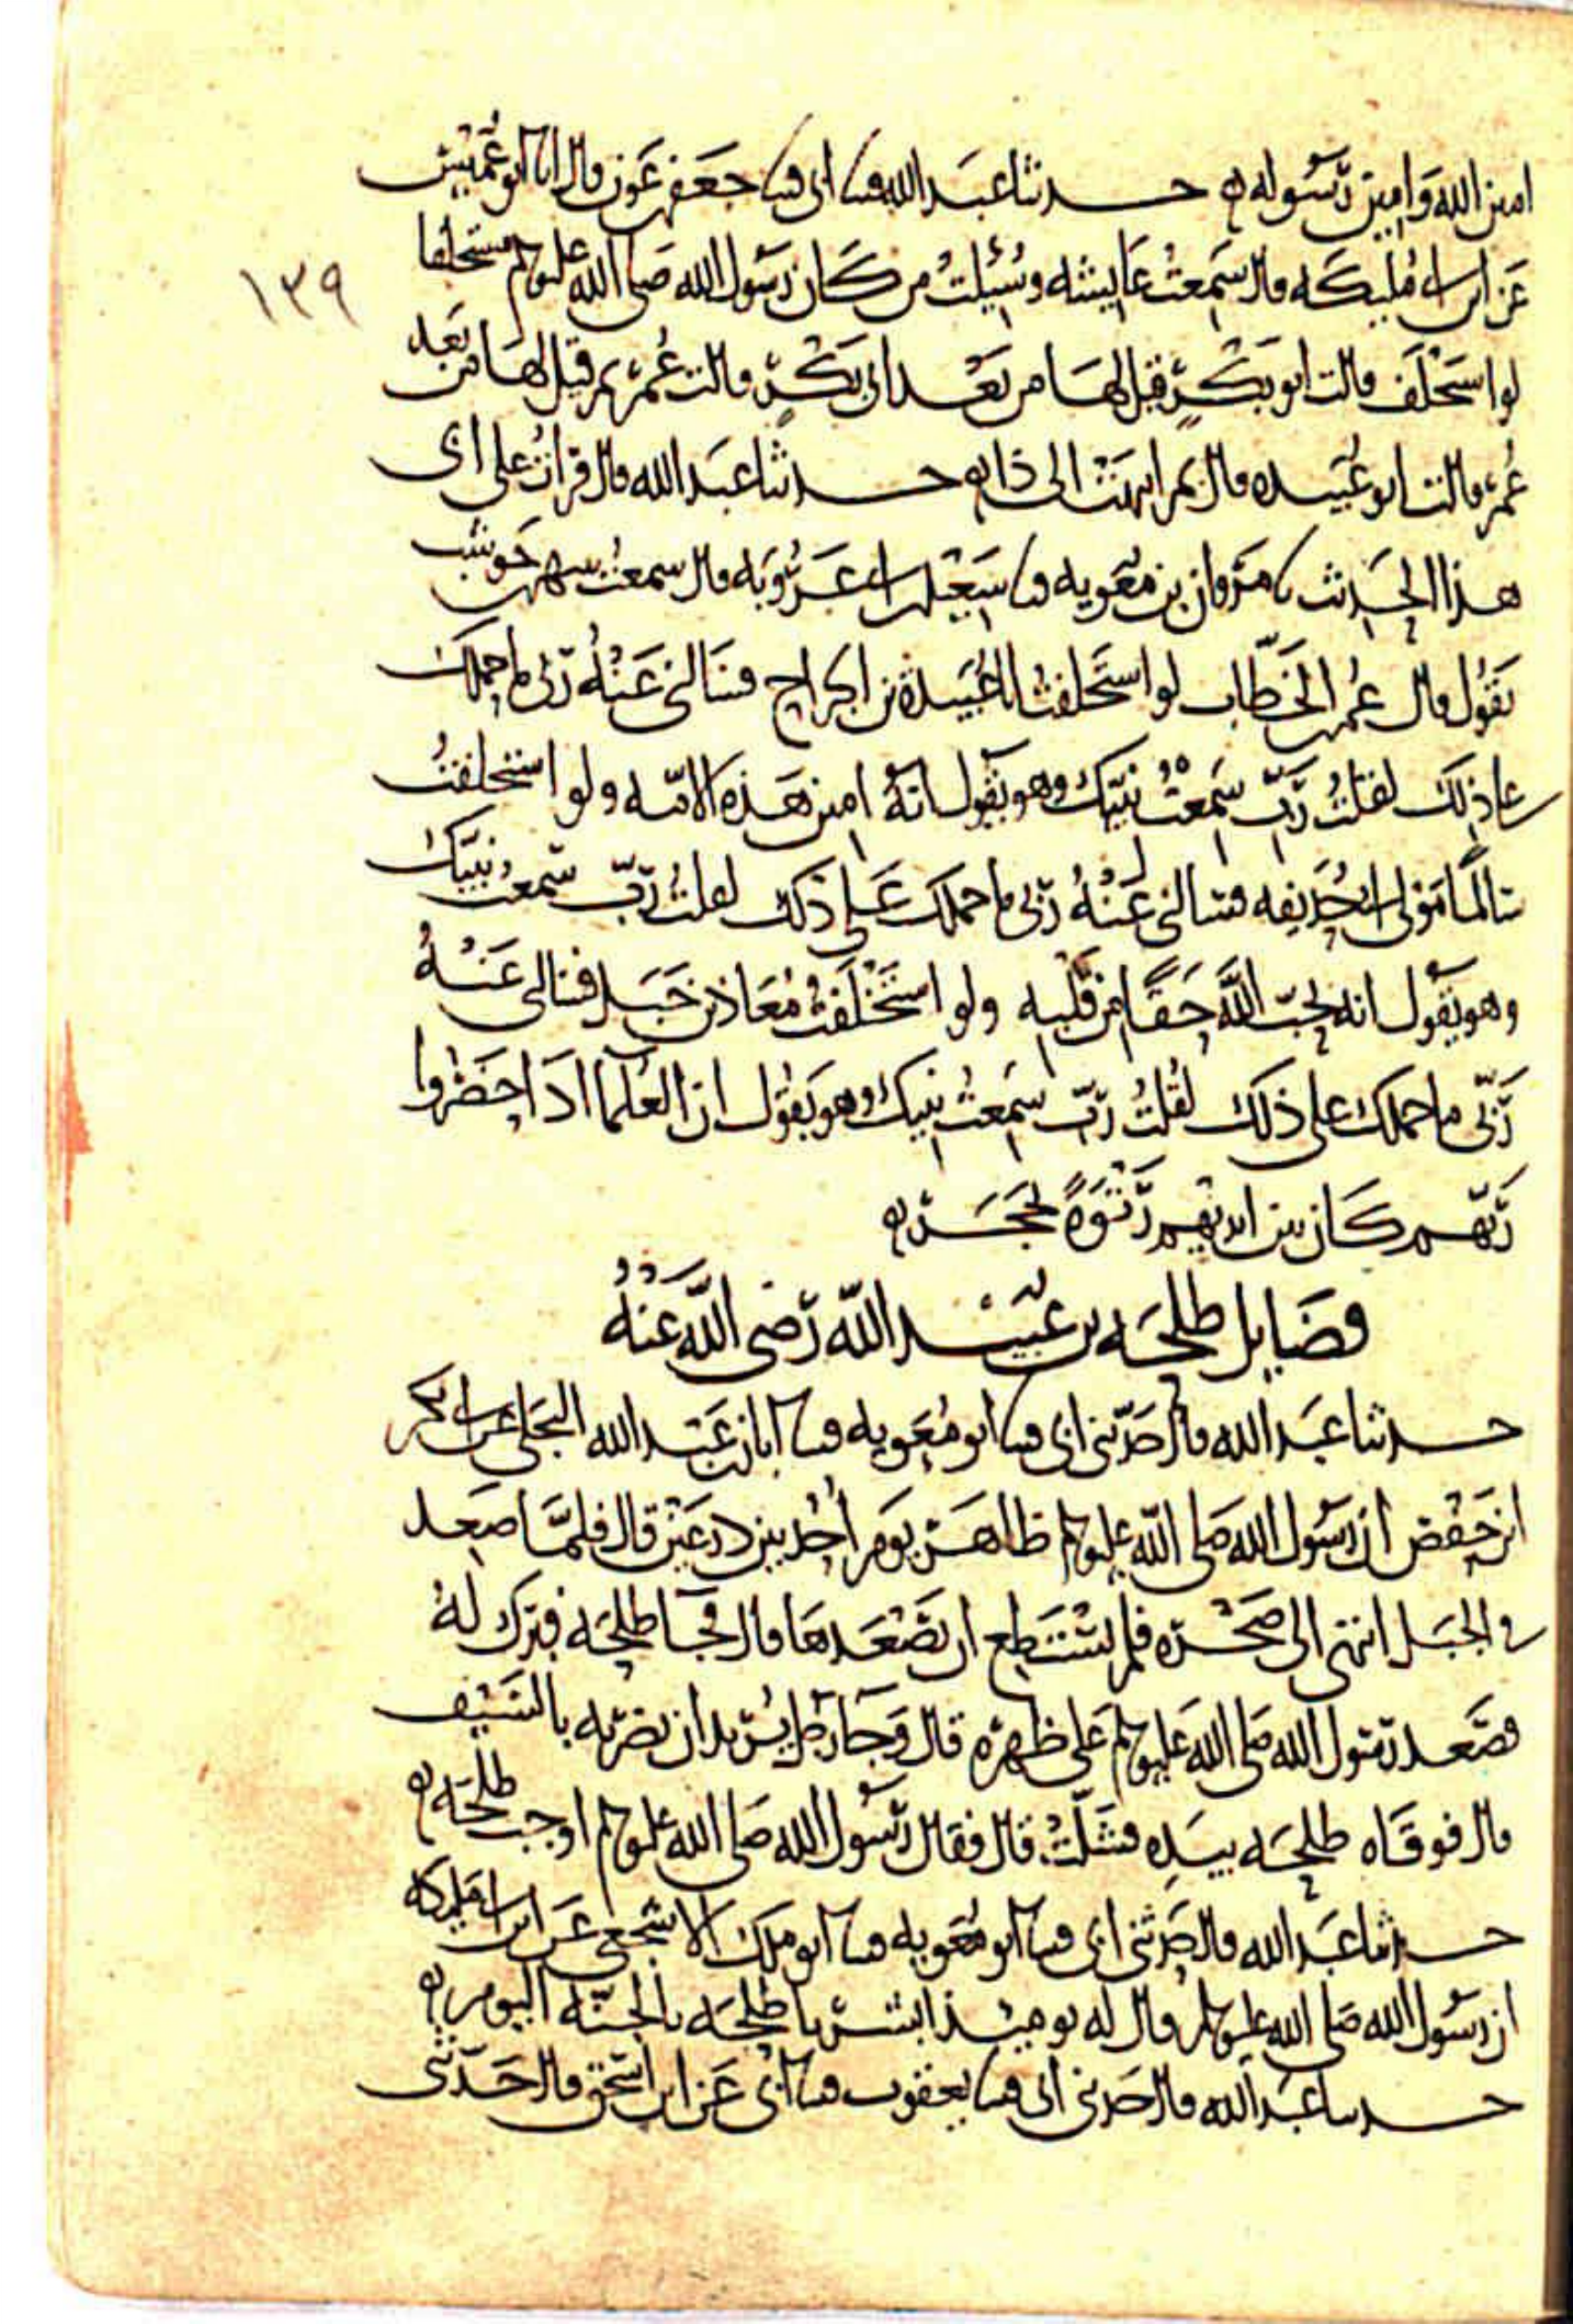 امين الله وامين رسوله ه حدثنا عبد الله قثنا ابى قثنا جعفر بن عون قال انا ابو عميس
١٣٩
عن ابن ابى مليكه قال سمعت عايشه وسيلت من كان رسول الله صلى الله عليه وسلم مستخلفا
لو استخلف قالت ابو بكر قيل لها من بعد ابى بكر قالت عمر ثم قيل لها من بعد
عمر قالت ابو عبيده قال ثم انتهت الى ذا ه حدثنا عبد الله قال قرات على ابى
هذا الحديث نا مروان بن معويه قثنا سعيد بن ابى عروبه قال سمعت شهر بن حوشب
يقول قال عمر بن الخطاب لو استخلفت ابا عبيدة بن الجراح فسالنى عنه ربى ما حملك
على ذلك لقلت رب سمعت نبيك وهو يقول انه امين هذه الامه ولو استخلفت
سالما مولى ابى حذيفه فسالنى عنه ربى ما حملك على ذلك لقلت رب سمعت نبيك
وهو يقول انه يحب الله حقا من قلبه ولو استخلفت معاذ بن جبل فسالنى عنه
ربى ما حملك على ذلك لقلت رب سمعت نبيك وهو يقول ان العلما اذا حضروا
ربهم كان بين ايديهم رتوة بحجر ه
فضايل طلحه بن عبيد الله رضى الله عنه
حدثنا عبد الله قال حدثنى ابى قثنا ابو معويه قثنا ابان بن عبد الله البجلى عن ابى بكر
ابن حفص ان رسول الله صلى الله عليه وسلم ظاهر يوم احد بين درعين قال فلما صعد
فى الجبل انتهى الى صخره فلم يستطع ان يصعدها قال فجا طلحه فبرك له
فصعد رسول الله صلى الله عليه وسلم على ظهره قال وجا رجل يريد ان يضربه بالسيف
قال فوقاه طلحه بيده فشلت قال فقال رسول الله صلى الله عليه وسلم اوجب طلحه ه
حدثنا عبد الله قال حدثنى ابى قثنا ابو معويه قثنا ابو ملك الاشجعى عن ابن ابى مليكه
ان رسول الله صلى الله عليه وسلم قال له يوميذ ابشر يا طلحه بالجنه اليوم ه
حدثنا عبد الله قال حدثنى ابى قثنا يعقوب قثنا ابى عن ابن اسحق قال حدثنى